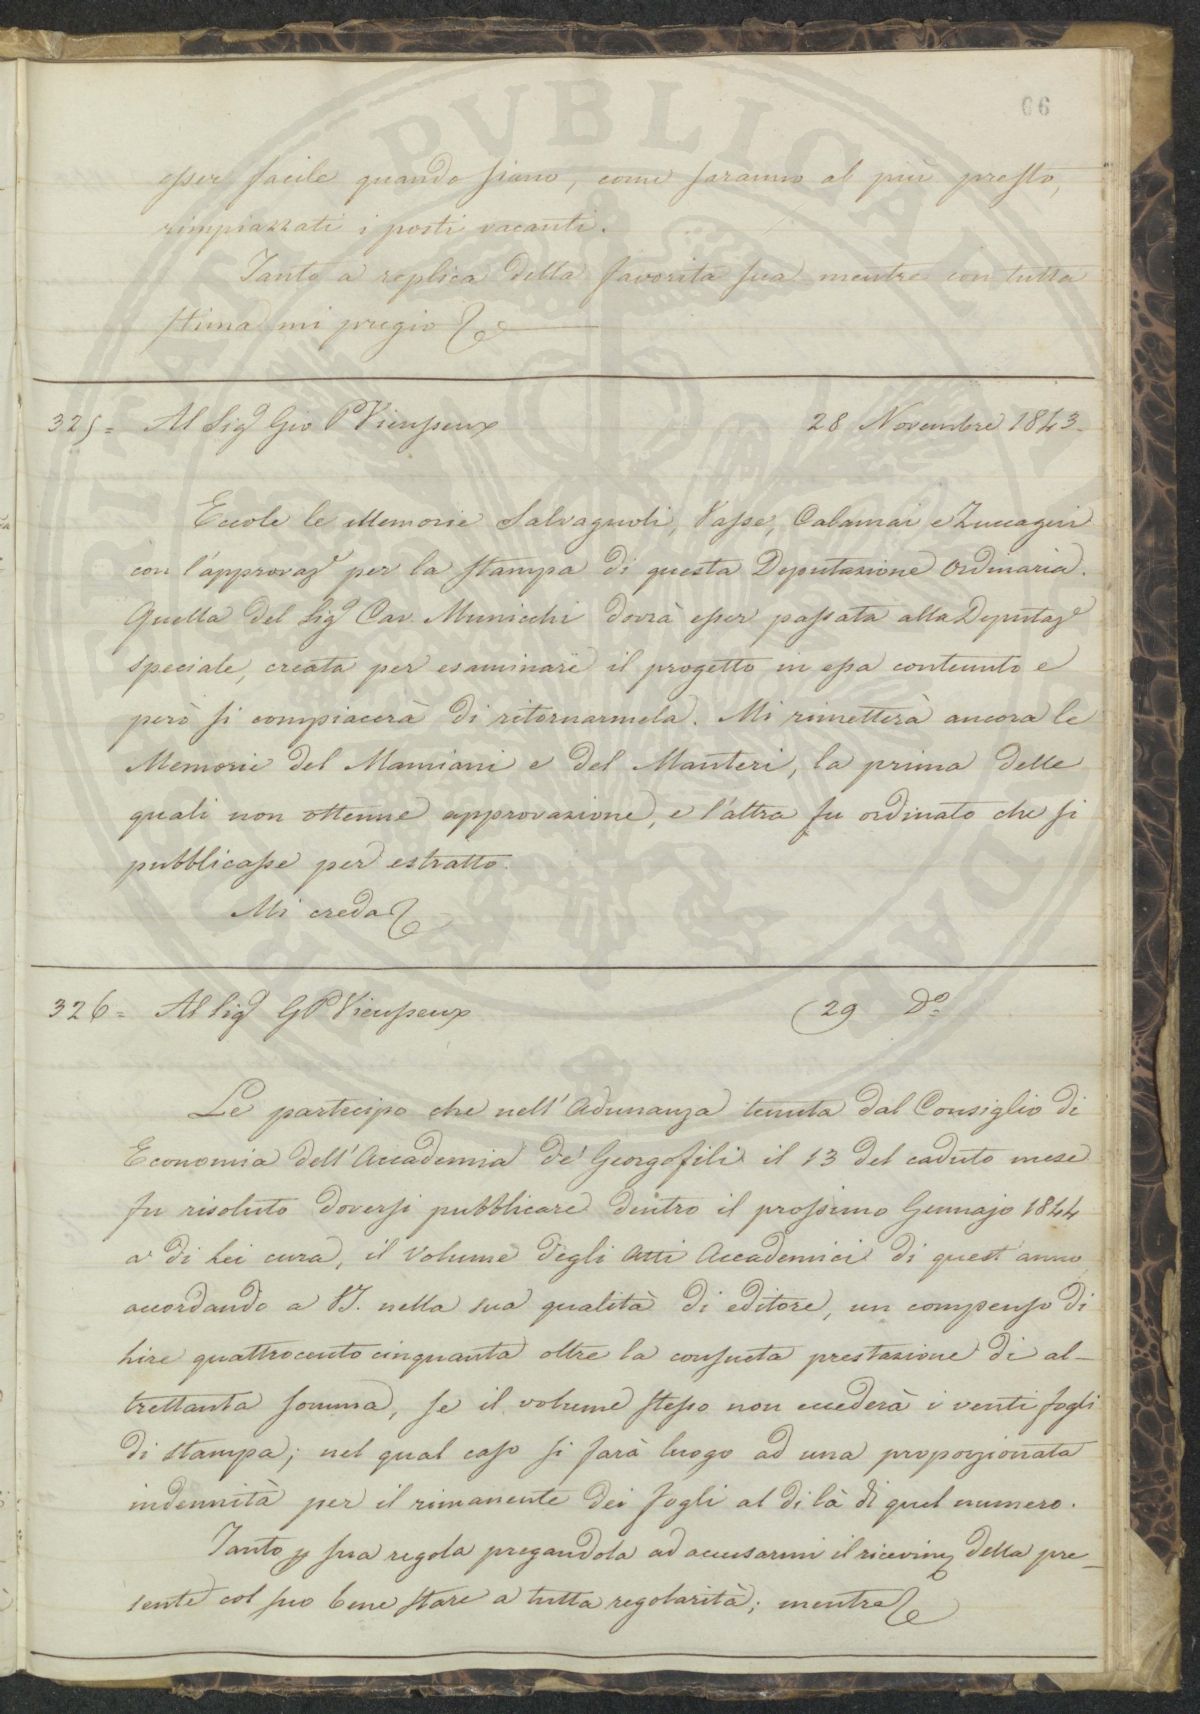 66
esser facile quando siano, come saranno al più presto,
rimpiazzati i posti vacanti.
Tanto a replica della favorita sua mentre con tutta
stima mi pregio
325= Al Sigr Gio P Vieusseux 28 Novembre 1843.
Eccole le Memorie Salvagnoli, Passe, Calamai e Zuccagni
con l'approvaze per la stampa di questa Deputazione Ordinaria.
Quella del Sigr Cav. Municchi dovrà esser passata alla Deputaze
speciale, creata per esaminare il progetto in essa contenuto e
però si compiacerà di ritornarmela. Mi rimetterà ancora le
Memorie del Mamiani e del Manteri, la prima delle
quali non ottenne approvazione, e l'altra fu ordinato che si
pubblicasse per estratto.
Mi creda
326= Al Sigr G P Vieusseux 29 Do=
Le partecipo che nell'Adunanza tenuta dal Consiglio di
Economia dell'Accademia de' Georgofili il 13 del caduto mese
fu risoluto doversi pubblicare dentro il prossimo Gennajo 1844
a di Lei cura, il Volume degli Atti Accademici di quest'anno
accordando a VS. nella sua qualità di editore, un compenso di
Lire quattrocento cinquanta oltre la consueta prestazione di al-
trettanta somma, se il volume stesso non eccederà i venti fogli
di stampa; nel qual caso si farà luogo ad una proporzionata
indennità per il rimanente dei fogli al di là di quel numero.
Tanto p sua regola pregandola ad accusarmi il ricevim della pre-
sente col suo bene stare a tutta regolarità; mentre
PVBLICA